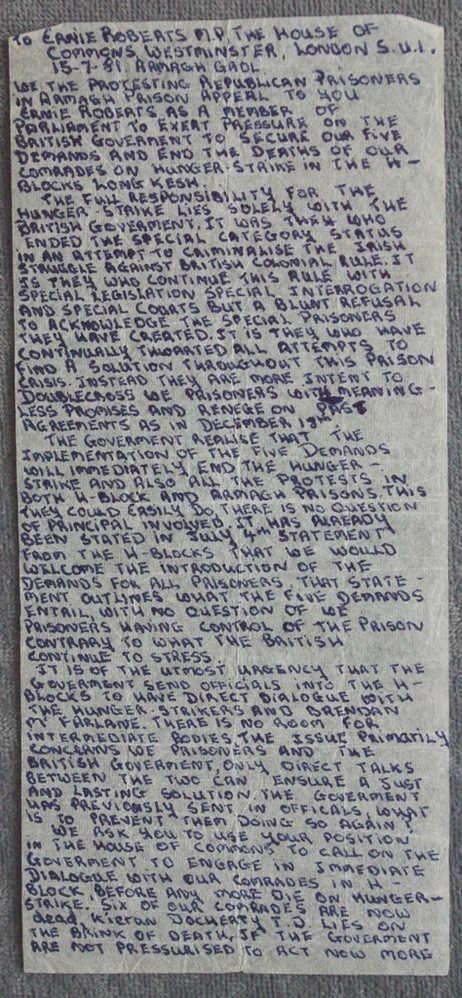 TO ERNIE ROBERTS M.P. THE HOUSE OF
COMMONS WESTMINSTER, LONDON S.U.1.
15-7-81. ARMAGH GAOL.
WE THE PROTESTING REPUBLICAN PRISONERS
IN ARMAGH PRISON APPEAL TO YOU
ERNIE ROBERTS AS A MEMBER OF
PARLIAMENT TO EXERT PRESSURE ON THE
BRITISH GOVERMENT TO SECURE OUR FIVE
DEMANDS AND END THE DEATHS OF OUR
COMRADES ON HUNGER STRIKE IN THE H-
BLOCKS LONG KESH.
THE FULL RESPONSIBILITY FOR THE
HUNGER-STRIKE LIES SOLELY WITH THE
BRITISH GOVERMENT. IT WAS THEY WHO
ENDED THE SPECIAL CATEGORY STATUS
IN AN ATTEMPT TO CRIMINALISE THE IRISH
STRUGGLE AGAINST BRITISH COLONIAL RULE. IT
IS THEY WHO CONTINUE THIS RULE WITH
SPECIAL LEGISLATION SPECIAL INTERROGATION
AND SPECIAL COURTS BUT A BLUNT REFUSAL
TO ACKNOWLEDGE THE SPECIAL PRISONERS
THEY HAVE CREATED. IT IS THEY WHO HAVE
CONTINUALLY THWARTED ALL ATTEMPTS TO
FIND A SOLUTION THROUGHOUT THIS PRISON
CRISIS. INSTEAD THEY ARE MORE INTENT TO
DOUBLECROSS WE PRISONERS WITH MEANING-
LESS PROMISES AND RENEGE ON PAST
AGREEMENTS AS IN DECEMBER 18TH
THE GOVERMENT REALISE THAT THE
IMPLEMENTATION OF THE FIVE DEMANDS
WILL IMMEDIATELY END THE HUNGER-
STRIKE AND ALSO ALL THE PROTESTS IN
BOTH H-BLOCK AND ARMAGH PRISONS. THIS
THEY COULD EASILY DO, THERE IS NO QUESTION
OF PRINCIPAL INVOLVED. IT HAS ALREADY
BEEN STATED IN JULY 4TH STATEMENT
FROM THE H-BLOCKS THAT WE WOULD
WELCOME THE INTRODUCTION OF THE
DEMANDS FOR ALL PRISONERS, THAT STATE-
MENT OUTLINES WHAT THE FIVE DEMANDS
ENTAIL, WITH NO QUESTION OF WE
PRISONERS HAVING CONTROL OF THE PRISON
CONTRARY TO WHAT THE BRITISH
CONTINUE TO STRESS.
IT IS OF THE UTMOST URGENCY THAT THE
GOVERMENT SEND OFFICIALS INTO THE H-
BLOCKS TO HAVE DIRECT DIALOGUE WITH
THE HUNGER-STRIKERS AND BRENDAN
Mc FARLANE. THERE IS NO ROOM FOR
INTERMEDIATE BODIES, THE ISSUE PRIMARILY
CONCERNS WE PRISONERS AND THE
BRITISH GOVERMENT, ONLY DIRECT TALKS
BETWEEN THE TWO CAN ENSURE A JUST
AND LASTING SOLUTION. THE GOVERMENT
HAS PREVIOUSLY SENT IN OFFICALS, WHAT
IS TO PREVENT THEM DOING SO AGAIN?
WE ASK YOU TO USE YOUR POSITION
IN THE HOUSE OF COMMONS TO CALL ON THE
GOVERMENT TO ENGAGE IN IMMEDIATE
DIALOGUE WITH OUR COMRADES IN H-
BLOCK BEFORE ANY MORE DIE ON HUNGER-
STRIKE. SIX OF OUR COMRADES ARE NOW
dead, Kieran DOCHERTY T.D. LIES ON
THE BRINK OF DEATH, IF THE GOVERMENT
ARE NOT PRESSURISED TO ACT NOW MORE